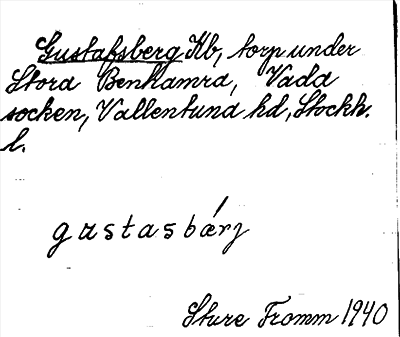 Gustafsberg Kb, torp under
Stora Benhamra, Vada
socken, Vallentuna hd, Stockh.
l.
gustasbærj
Sture Fromm 1940